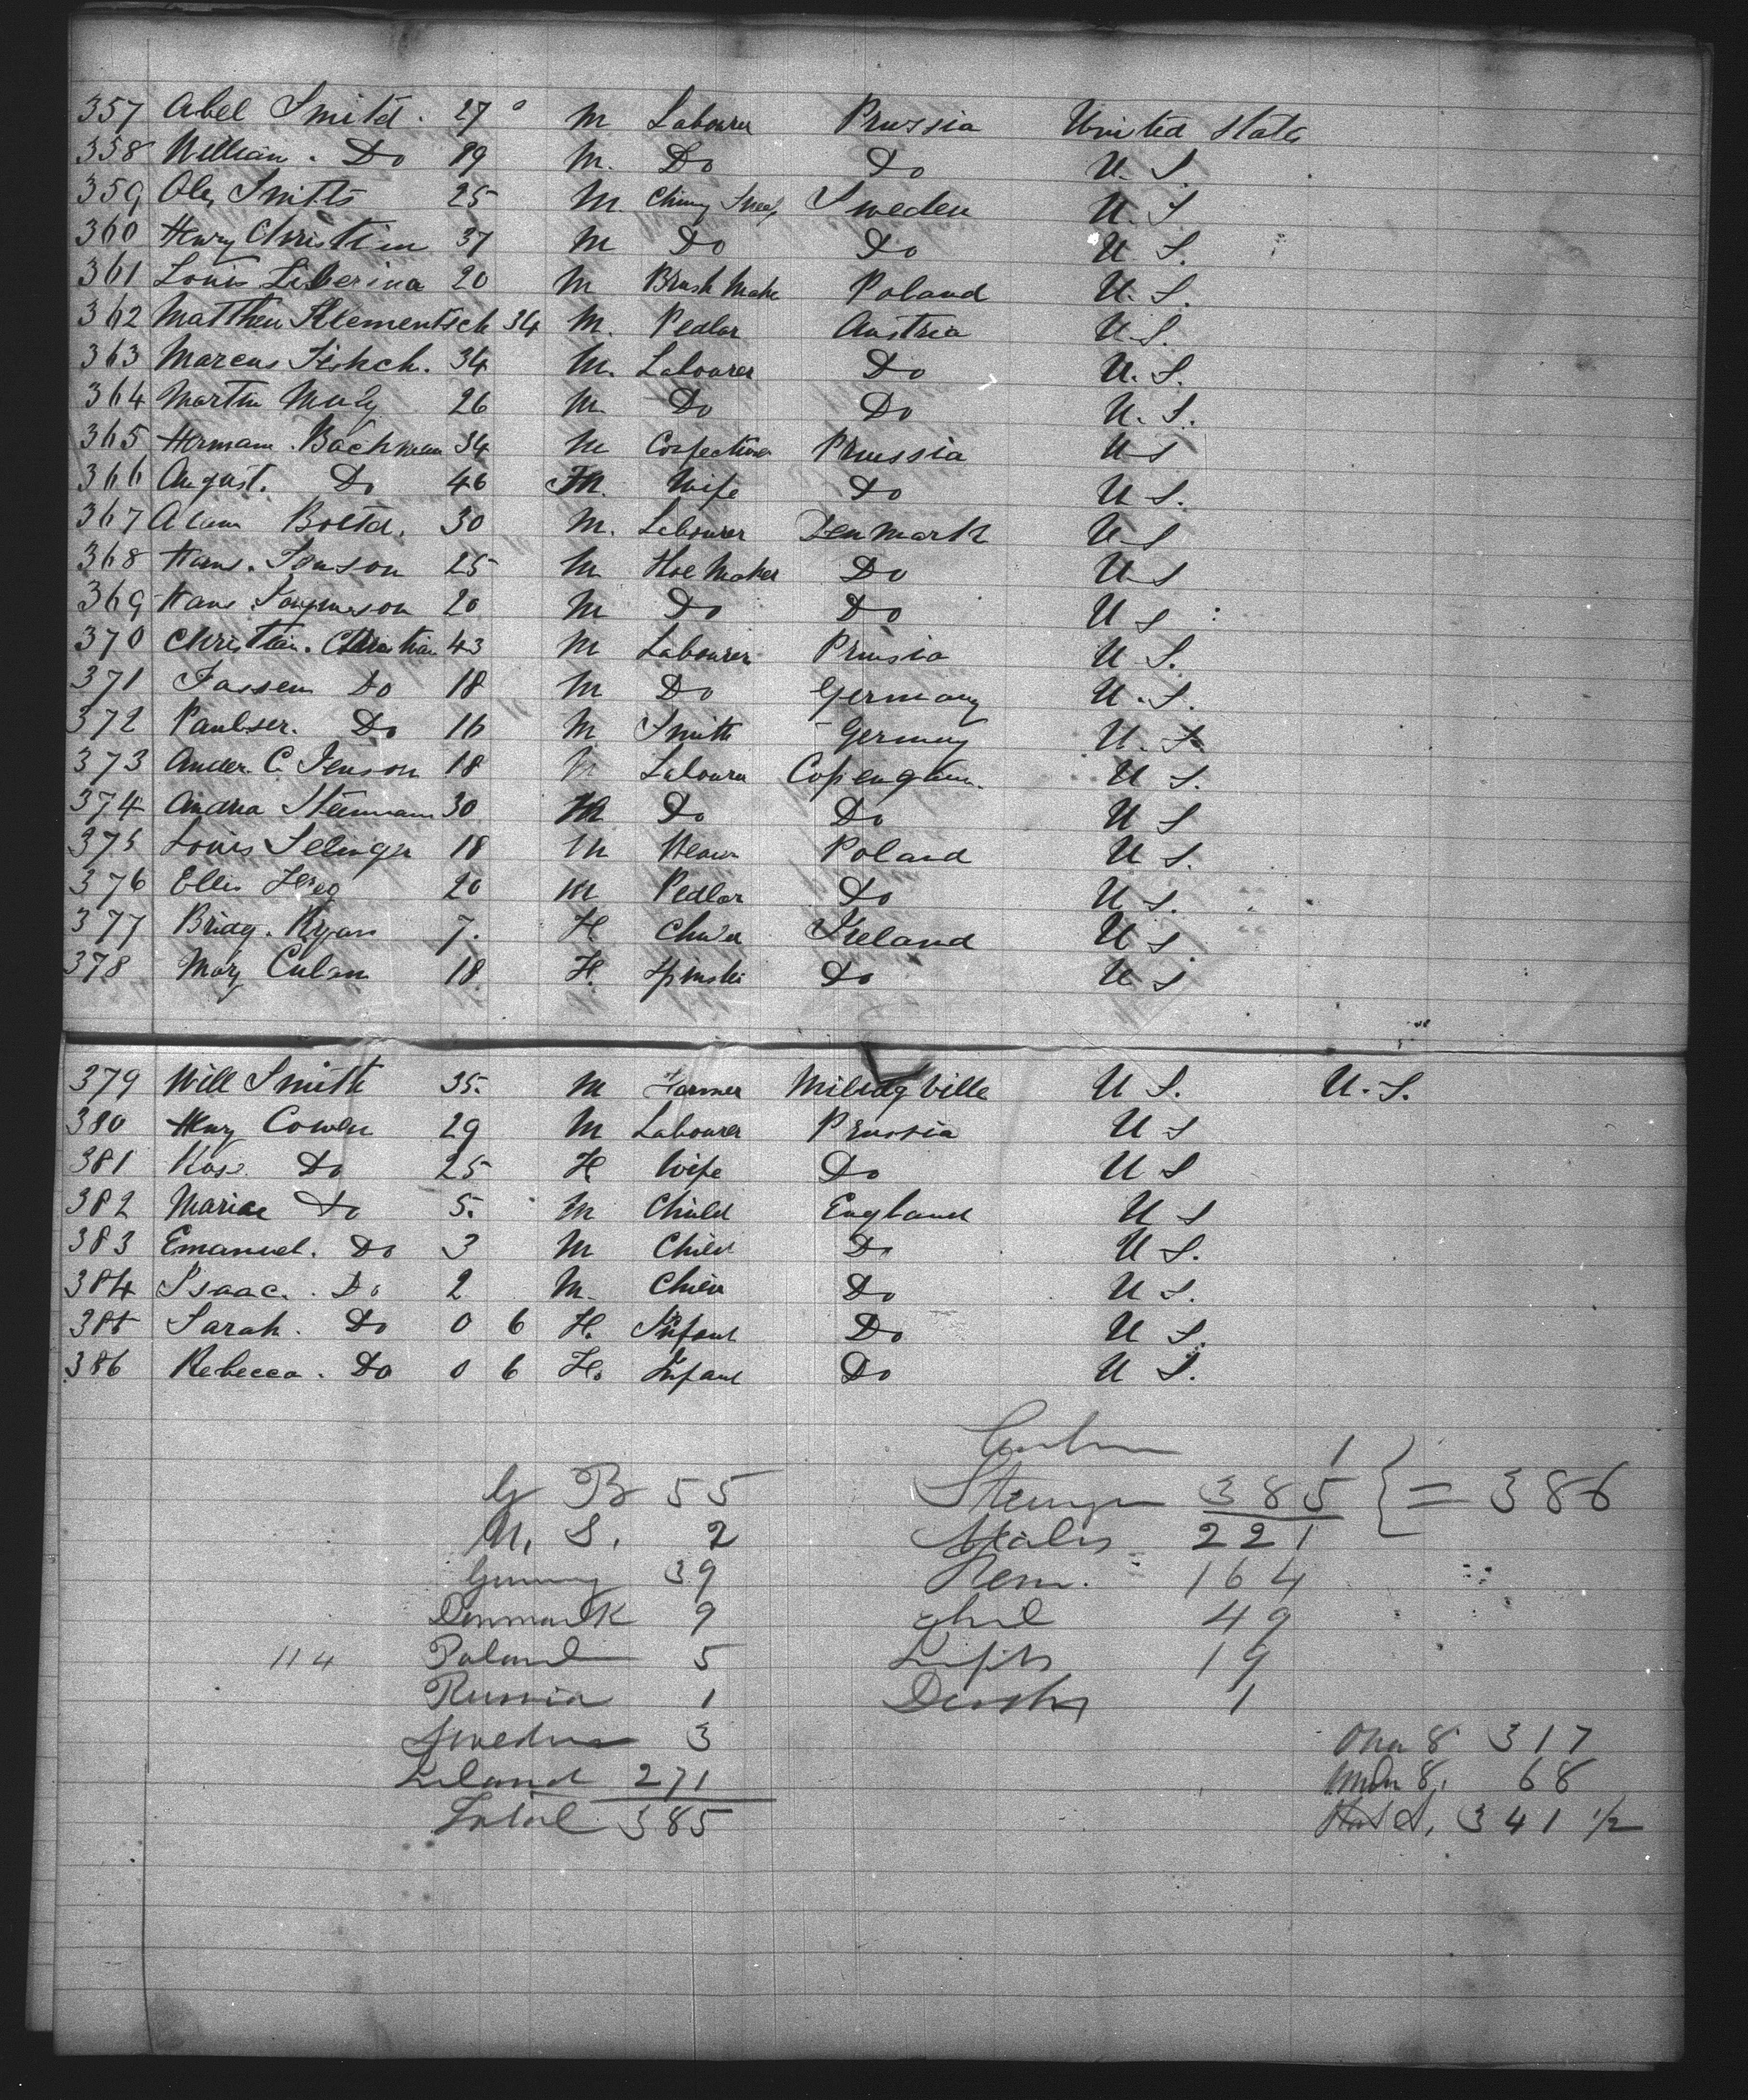 357 Abel Smitd. 27 M Labourer Prussia United State
358 William. Do 19 M. Do Do U. S.
359 Ole Smitts 25 M. Chimy Sweep Sweden U. S.
360 Henry Christian 37 M Do Do U. S.
361 Louis Liberina 20 M Brush Make Poland U. S.
362 Matthew Klementsch 34 M. Pedlar Austria U. S.
363 Marcus Fishch. 34 M. Labourer Do U. S.
364 Martin Maly 26 M Do Do U. S.
365 Hermann. Bachman 34 M Confectioner Prussia U S
366 August. Do 46 Wife Do U S.
367 Adam Boltd. 30 M. Labourer Denmark U S
368 Hans. Jonson 25 M Hoe Maker Do U S
369 Hans 20 M Do Do U S
370 Christian. Christian 43 M Labourer Prusia U S.
371 Jassen Do 18 M Do Germany U. S.
372 Do 16 M Smith Germany U. S.
373 Ander. C. Jenson 18 M Labourer Copengham. U S.
374 Andrea 30 M Do Do U S
375 Louis Selinger 18 M Poland U S.
376 Ellis 20 M Pedlar Do U S.
377 Bridg. Ryan 7. F. Child Ireland U S
378 Mary Culan 18. F. Do U S
379 Will Smith 35. M Farmer Miledgville U S. U. S.
380 Henry Cowen 29 M Labourer Prussia U S
381 Rose Do 25 F. Wife Do U S
382 Mariae Do 5. M Child England U S
383 Emanuel. Do 3 M Child Do U S.
384 Isaac. Do 2 M. Child Do U S.
385 Sarah. Do 0 6 F. Infant Do U S.
386 Rebecca. Do 0 6 F. Infant Do U S.
Cabin 1
G B 55 Steerage 385 } = 386
U. S. 2 Males 221
Germany 39 Fem. 164
Denmark 9 Chil 49
114 Poland 5 Infts 19
Russia 1 Deaths 1
Sweden 3 Over 8 317
Ireland 271 Under 8. 68
Total 385 341 1/2